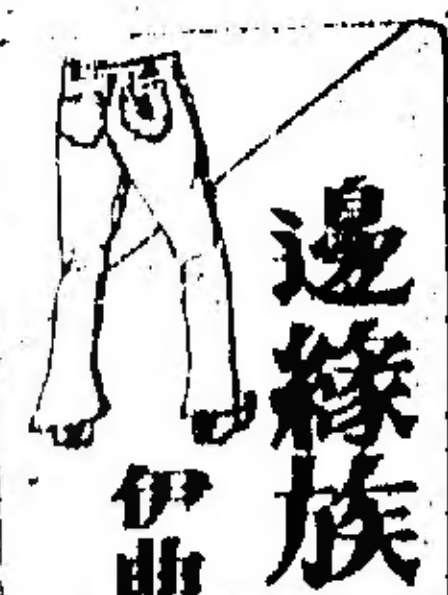 邊緣族
伊